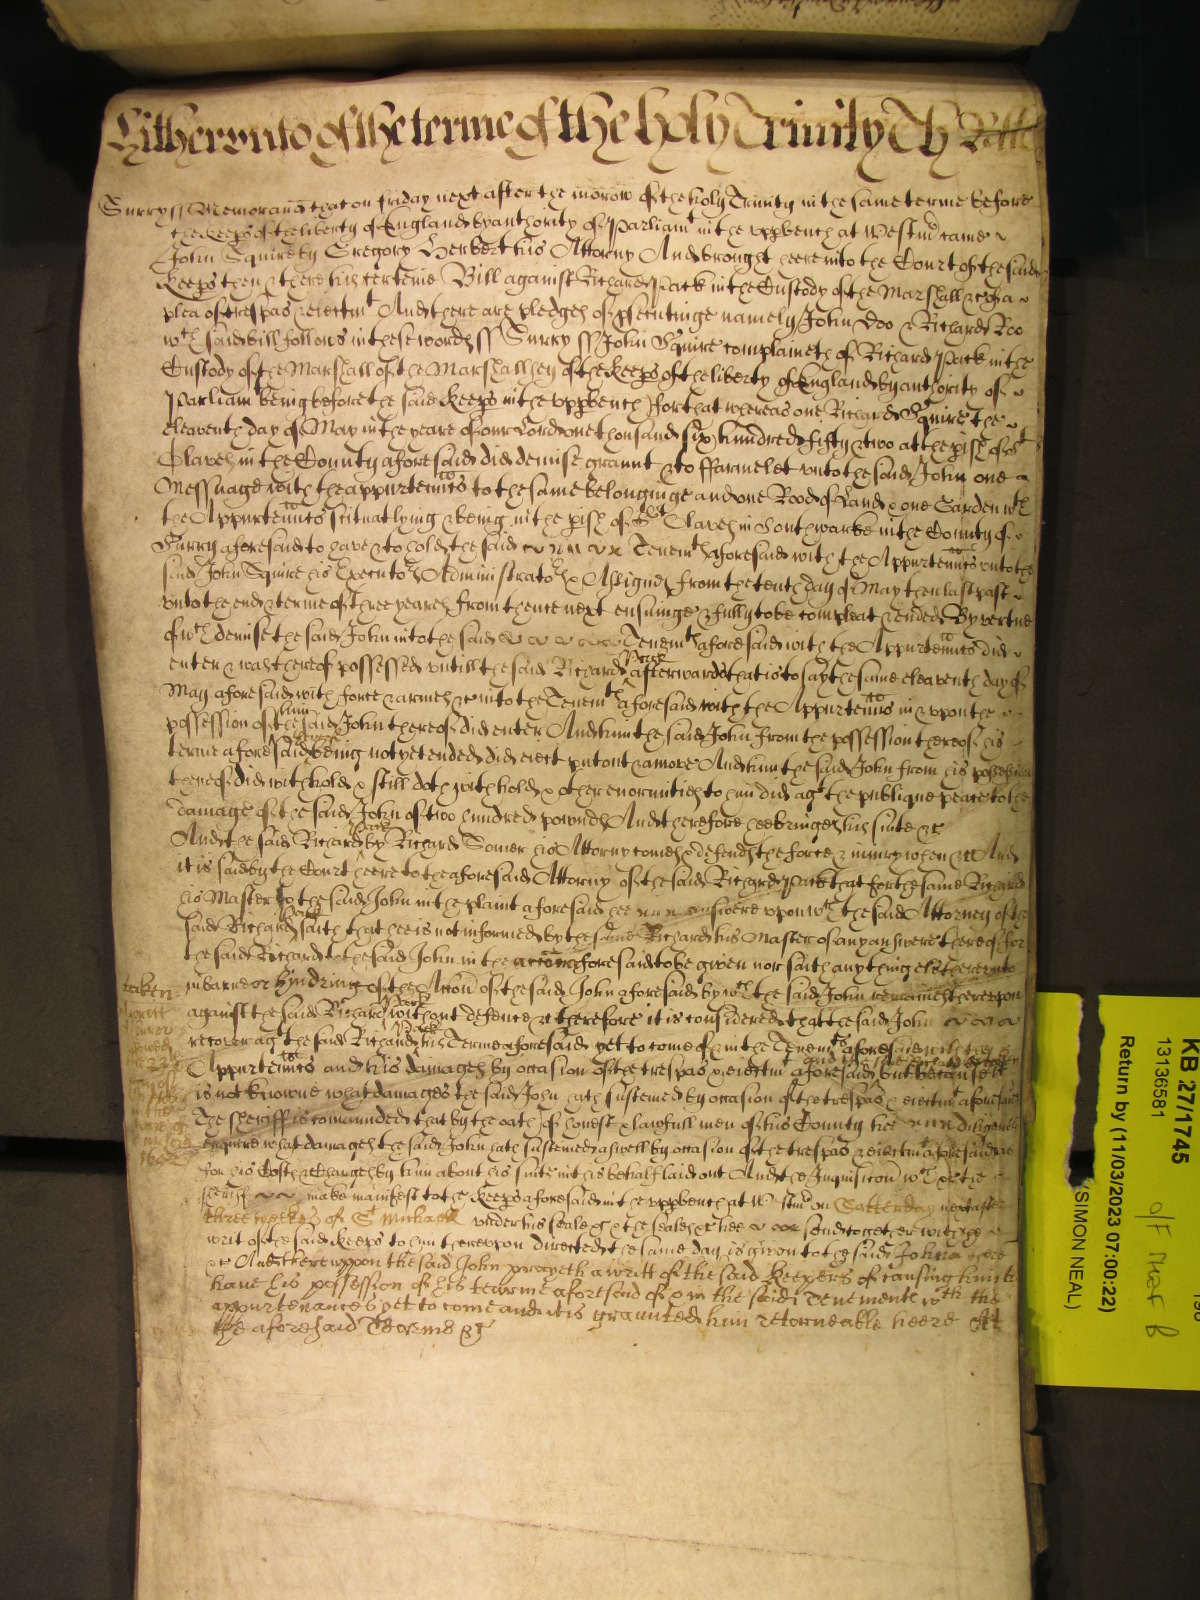 Hitherunto of the terme of the holy Trinity
Surry ss Memorand that on friday next after the morow of the holy Trinity in the same terme before
the keeps of the liberty of England by authority of Parliamt in the vppbench at Westmr came
John Squire by Gregory Herbert his Attorny And brought heere into the Court of the said
keeps then & there his certeine Bill against Richard Pack in the Custody of the Marshall &c of a
plea of trespas & eiectmt And there are pledges of psecutinge namely John Doo & Richard Roo
wch said bill follows in these words ss Surry ss John Squire complaineth of Richard Pack in the
Custody of the Marshall of the Marshallsey of the keeps of the liberty of England by authority of
Parliamt being before the said keeps in the vppbench for that whereas one Richard Squire the
eleaventh day of May in the yeare of our Lord one thousand six hundred fifty & two at the pish of St
Olaves in the County aforesaid did demise graunt & to ffarme let vnto the said John one
Messuage with the appurtennces to the same belonginge and one Rood of Land & one Garden wth
the Appurtennces scituat lying & being in the pish of St Olaves in Southwarke in the County of
Surry aforesaid to have & to hold the said Tenemts aforesaid with the Appurtennces vnto the
said John Squire his Executors Administrators & Assignes from the tenth day of May then last past
vnto the end & terme of three yeares from thence next ensuinge & fully to be compleat & ended By vertue
of wch demise the said John into the said Tenemts aforesaid with the Appurtennces did
enter & was thereof possessed vntill the said Richard Pack afterwards that is to say the same eleaventh day of
May aforesaid with force & armes &c into the Tenemts aforesaid with the Appurtennces in & vpon the
possession of him the said John thereof did enter And him the said John from the possession thereof his
terme aforesaid being not yet ended did eiect put out & amove And him the said John from his possession
thereof did withhold & still doth withhold & other enormities to him did agt the publique peace to the
damage of the said John of two hundred pownds And therefore hee bringes his suite &c
And the said Richard Pack by Richard Somer his Attorny comes & defends the force & iniury when &c And
it is said by the Court heere to the aforesaid Attorny of the said Richard Pack that for the same Richard
his Master to the said John in the plaint aforesaid hee answere vpon wch the said Attorney of the
said Richard Pack saith that hee is not informed by the same Richard his Master of any answere therefore for
the said Richard to the said John in the action aforesaid to be given nor saith any thing els therevnto
in barre or hyndring of the Accon of the said John aforesaid by wch the said John remaines therevpon
against the said Richard Pack without defence &c therefore it is considered that the said John
recover agt the said Richard Pack his Terme aforesaid yet to come of & in the Tenemts aforesaid with the
Appurtennces and his damages by occasion of the trespas & eiectmt aforesaid but because it
is not knowne what damages the said John hath susteined by occasion of the trespas & eiectmt aforesaid
The sheriff is comaunded that by the oath of honest & lawfull men of his County hee diligently
enquire what damages the said John hath susteined aswell by occasion of the trespas & eiectmt aforesaid as
for his Costs & Charges by him about his suite in this behalf laid out And the Inquisicon wch &c the
sheriff make manifest to the keeps aforesaid in the vppbench at Westmr on Satterday next after
three weekes of St Michaell vnder his seale &c & the seales &c hee send together with the
writ of the said keeps to him therevpon directed the same day is given to the said John heere
&c And therevppon the said John prayeth a writt of the said Keepers of causing him to
have his possession of his tearme aforesaid of & in the said Tenements with the
appurtenances yet to come and it is graunted him retorneable heere att
the aforesaid Terme &c
taken
KB 27/1745
13136581
Return by (11/03/2023 07:00:22)
(SIMON NEAL)